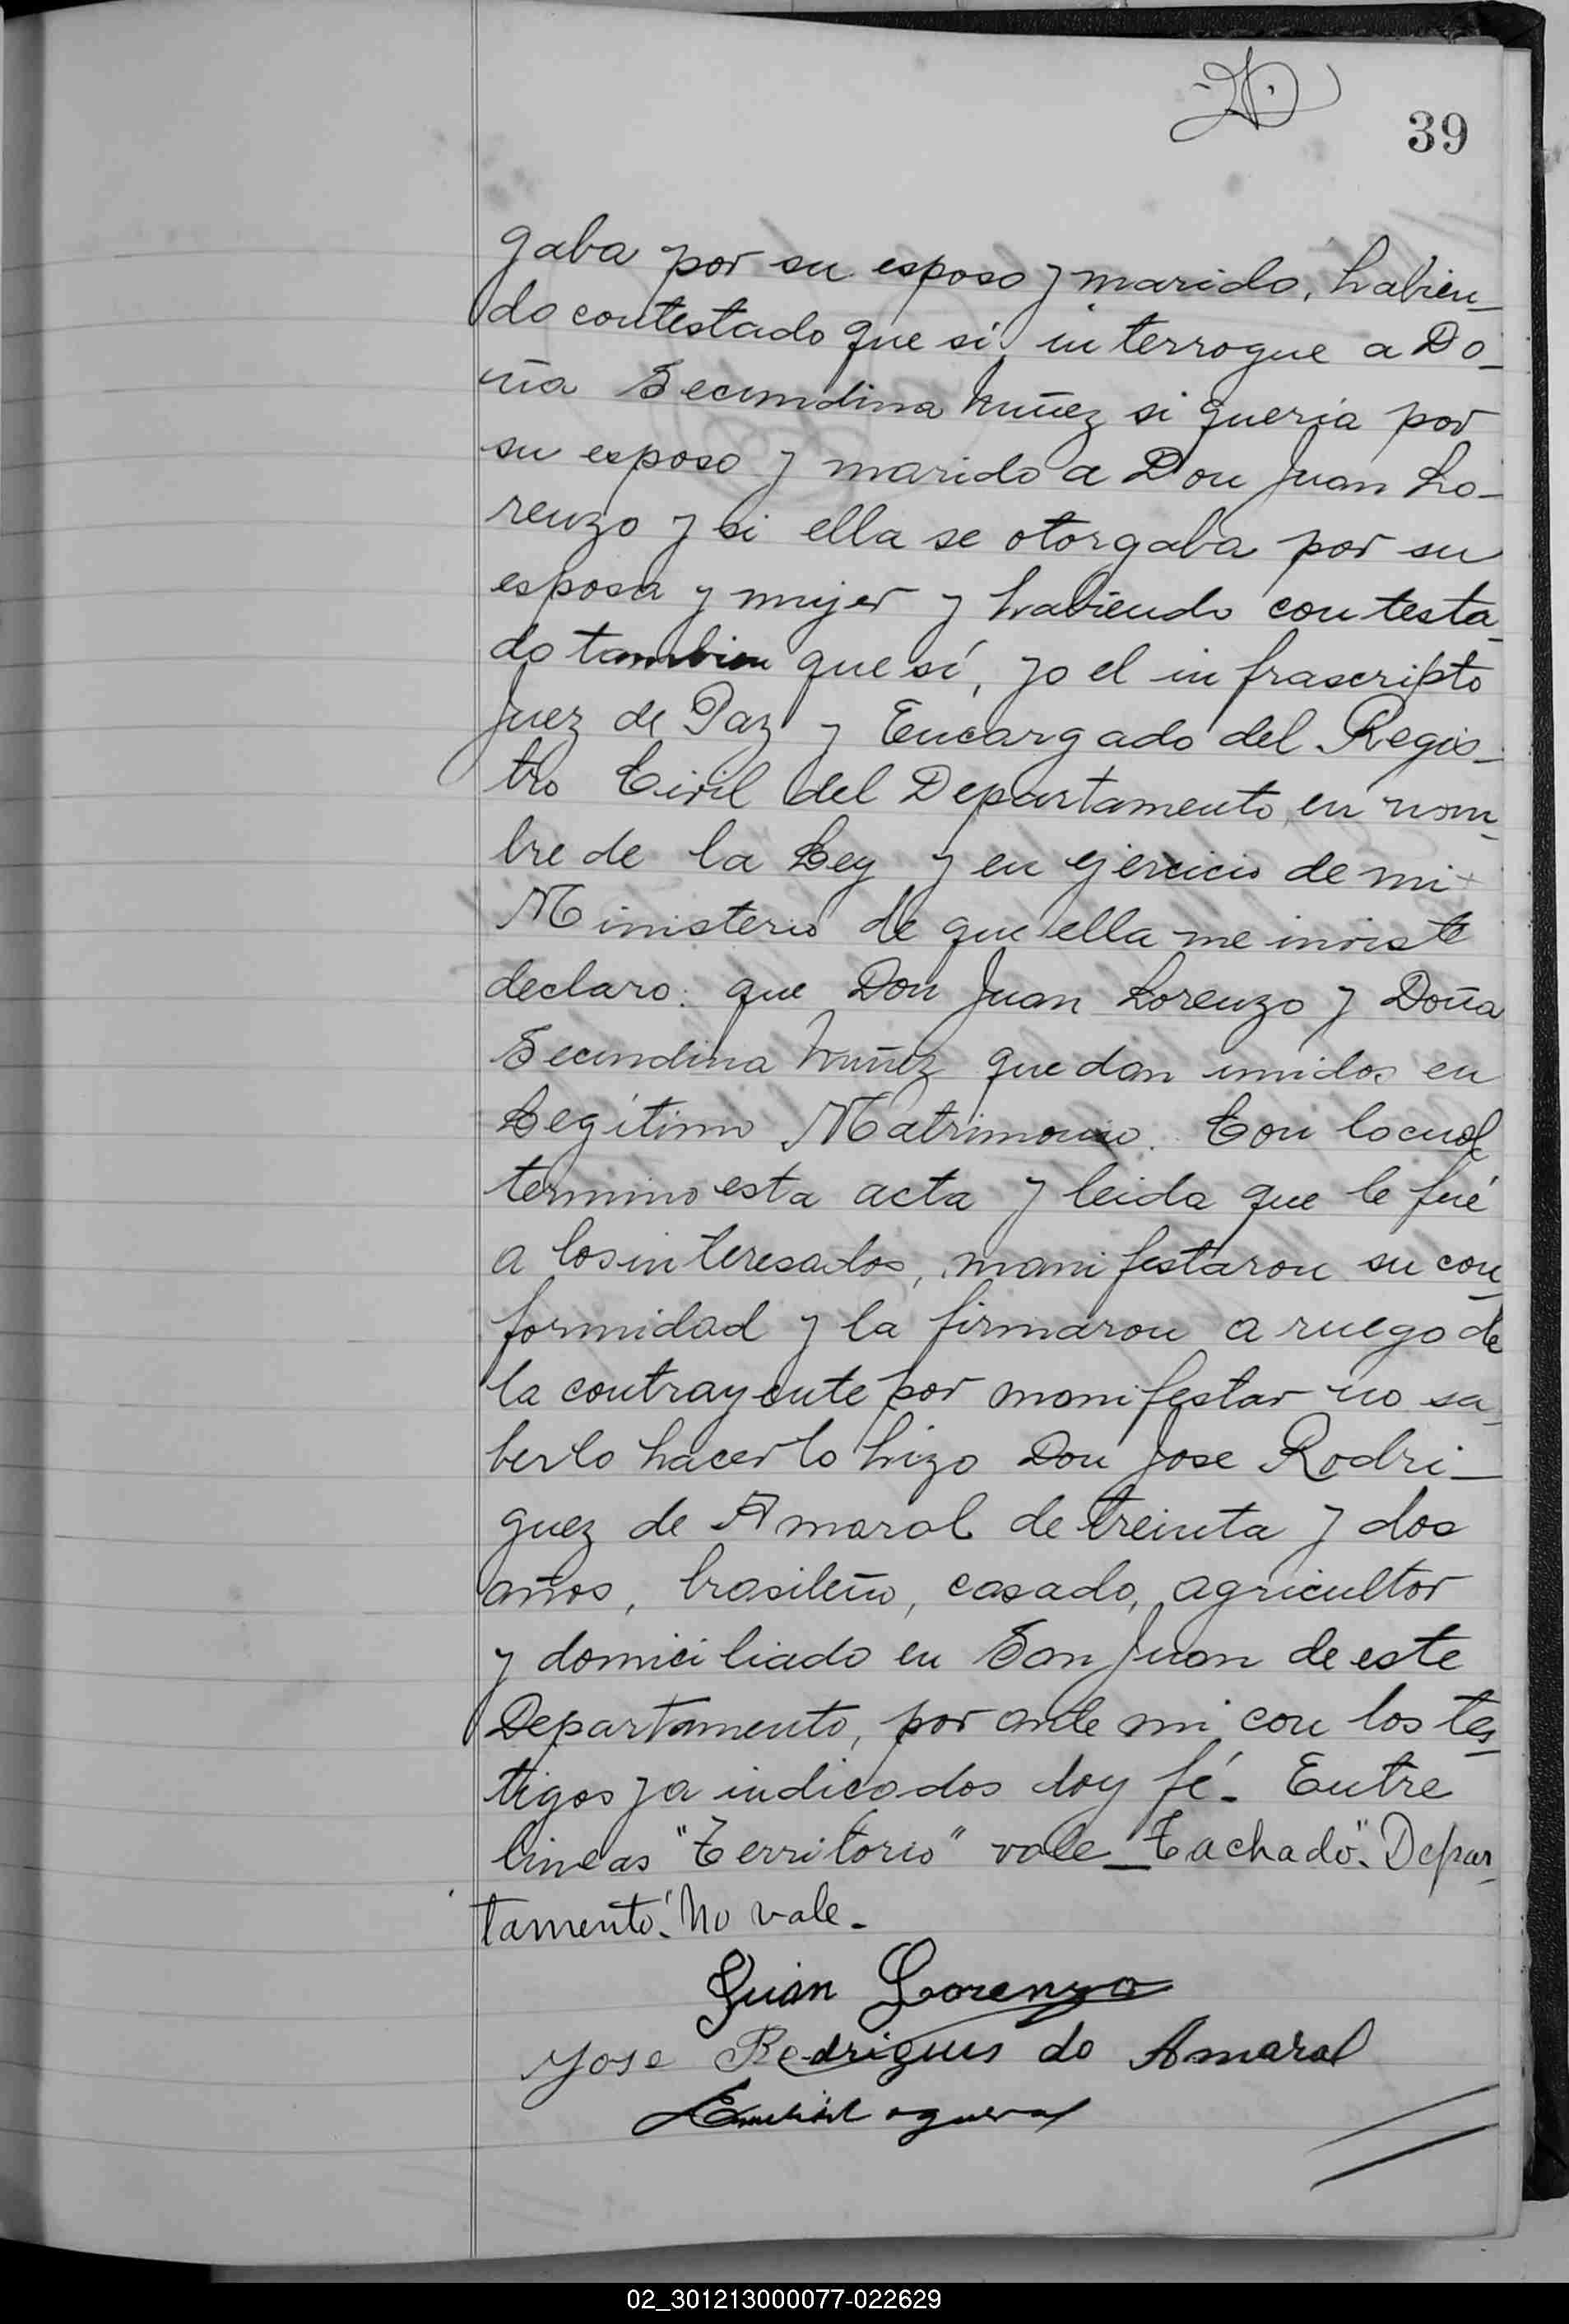 39
gaba por su esposo y marido, habien-
do contestado que sí, interrogue a Do-
ña Secundina Nuñez si queria por
su esposo y marido a Don Juan Lo-
renzo y si ella se otorgaba por su
esposa y mujer y habiendo contesta-
do tambien que sí, yo el infrascripto
Juez de Paz y Encargado del Regis-
tro Civil del Departamento en nom-
bre de la Ley y en ejercicio de mi
Ministerio de que ella me inviste
declaro: que Don Juan Lorenzo y Doña
Secundina Nuñez quedan unidos en
Legítimo Matrimonio. Con lo cual
termino esta acta y leida que le fué
a los interesados, manifestaron su con-
formidad y la firmaron a ruego de
la contrayente por manifestar no sa-
berlo hacer lo hizo Don Jose Rodri-
guez de Amaral de treinta y dos
años, brasileño, casado, agricultor
y domiciliado en San Juan de este
Departamento, por ante mi con los tes-
tigos ya indicados doy fé. Entre
lineas "Territorio" vale - Tachado". Depar-
tamento". No vale.
Juan Lorenzo
Jose Rodrigues do Amaral
02_301213000077-022629